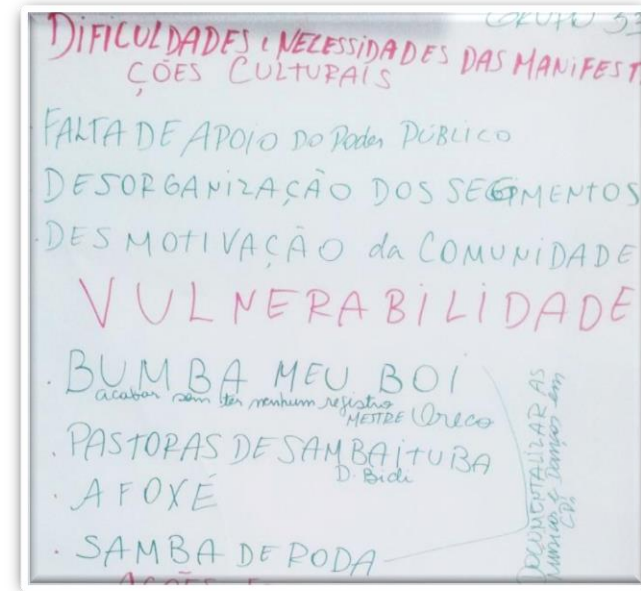 GRUPO 53
DIFICULDADES E NECESSIDADES DAS MANIFEST
ÇÕES CULTURAIS
FALTA DE APOIO DO Poder PÚBLICO
DESORGANIZAÇÃO DOS SEGMENTOS
. DESMOTIVAÇÃO da COMUNIDADE
VULNERABILIDADE
. BUMBA MEU BOI
acabar sem ter nenhum registro
MESTRE
. PASTORAS DE SAMBAITUBA
D. Bidi
. AFOXÉ
. SAMBA DE RODA
DOCUMENTALIZAR AS
Músicas e Danças em
CD.